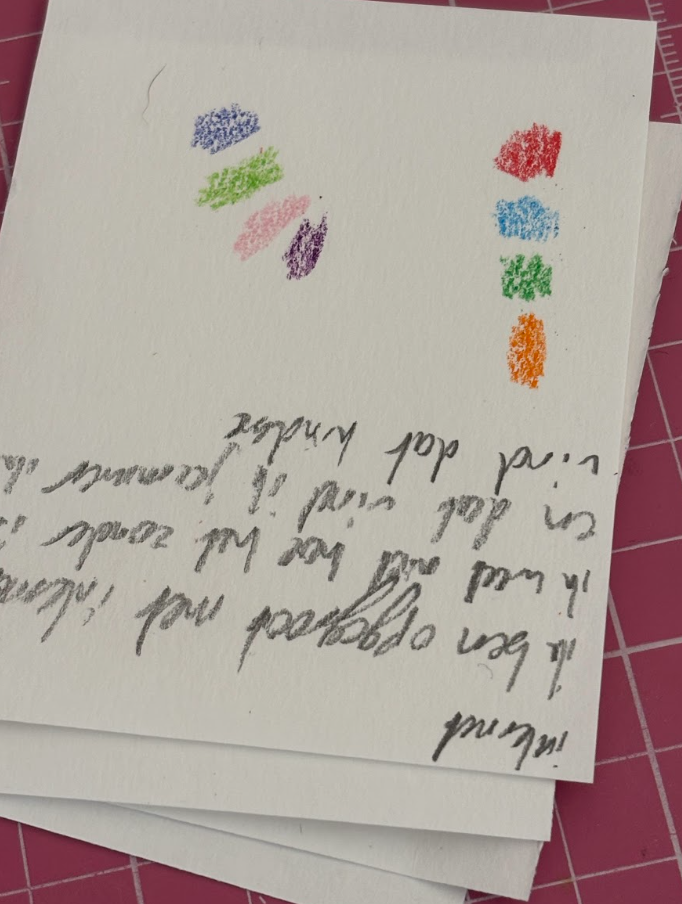 internet
ik ben opgegroeid met interne
ik weet niet hoe het zonder is
en dat vind ik jammer ik
vind dat kinder